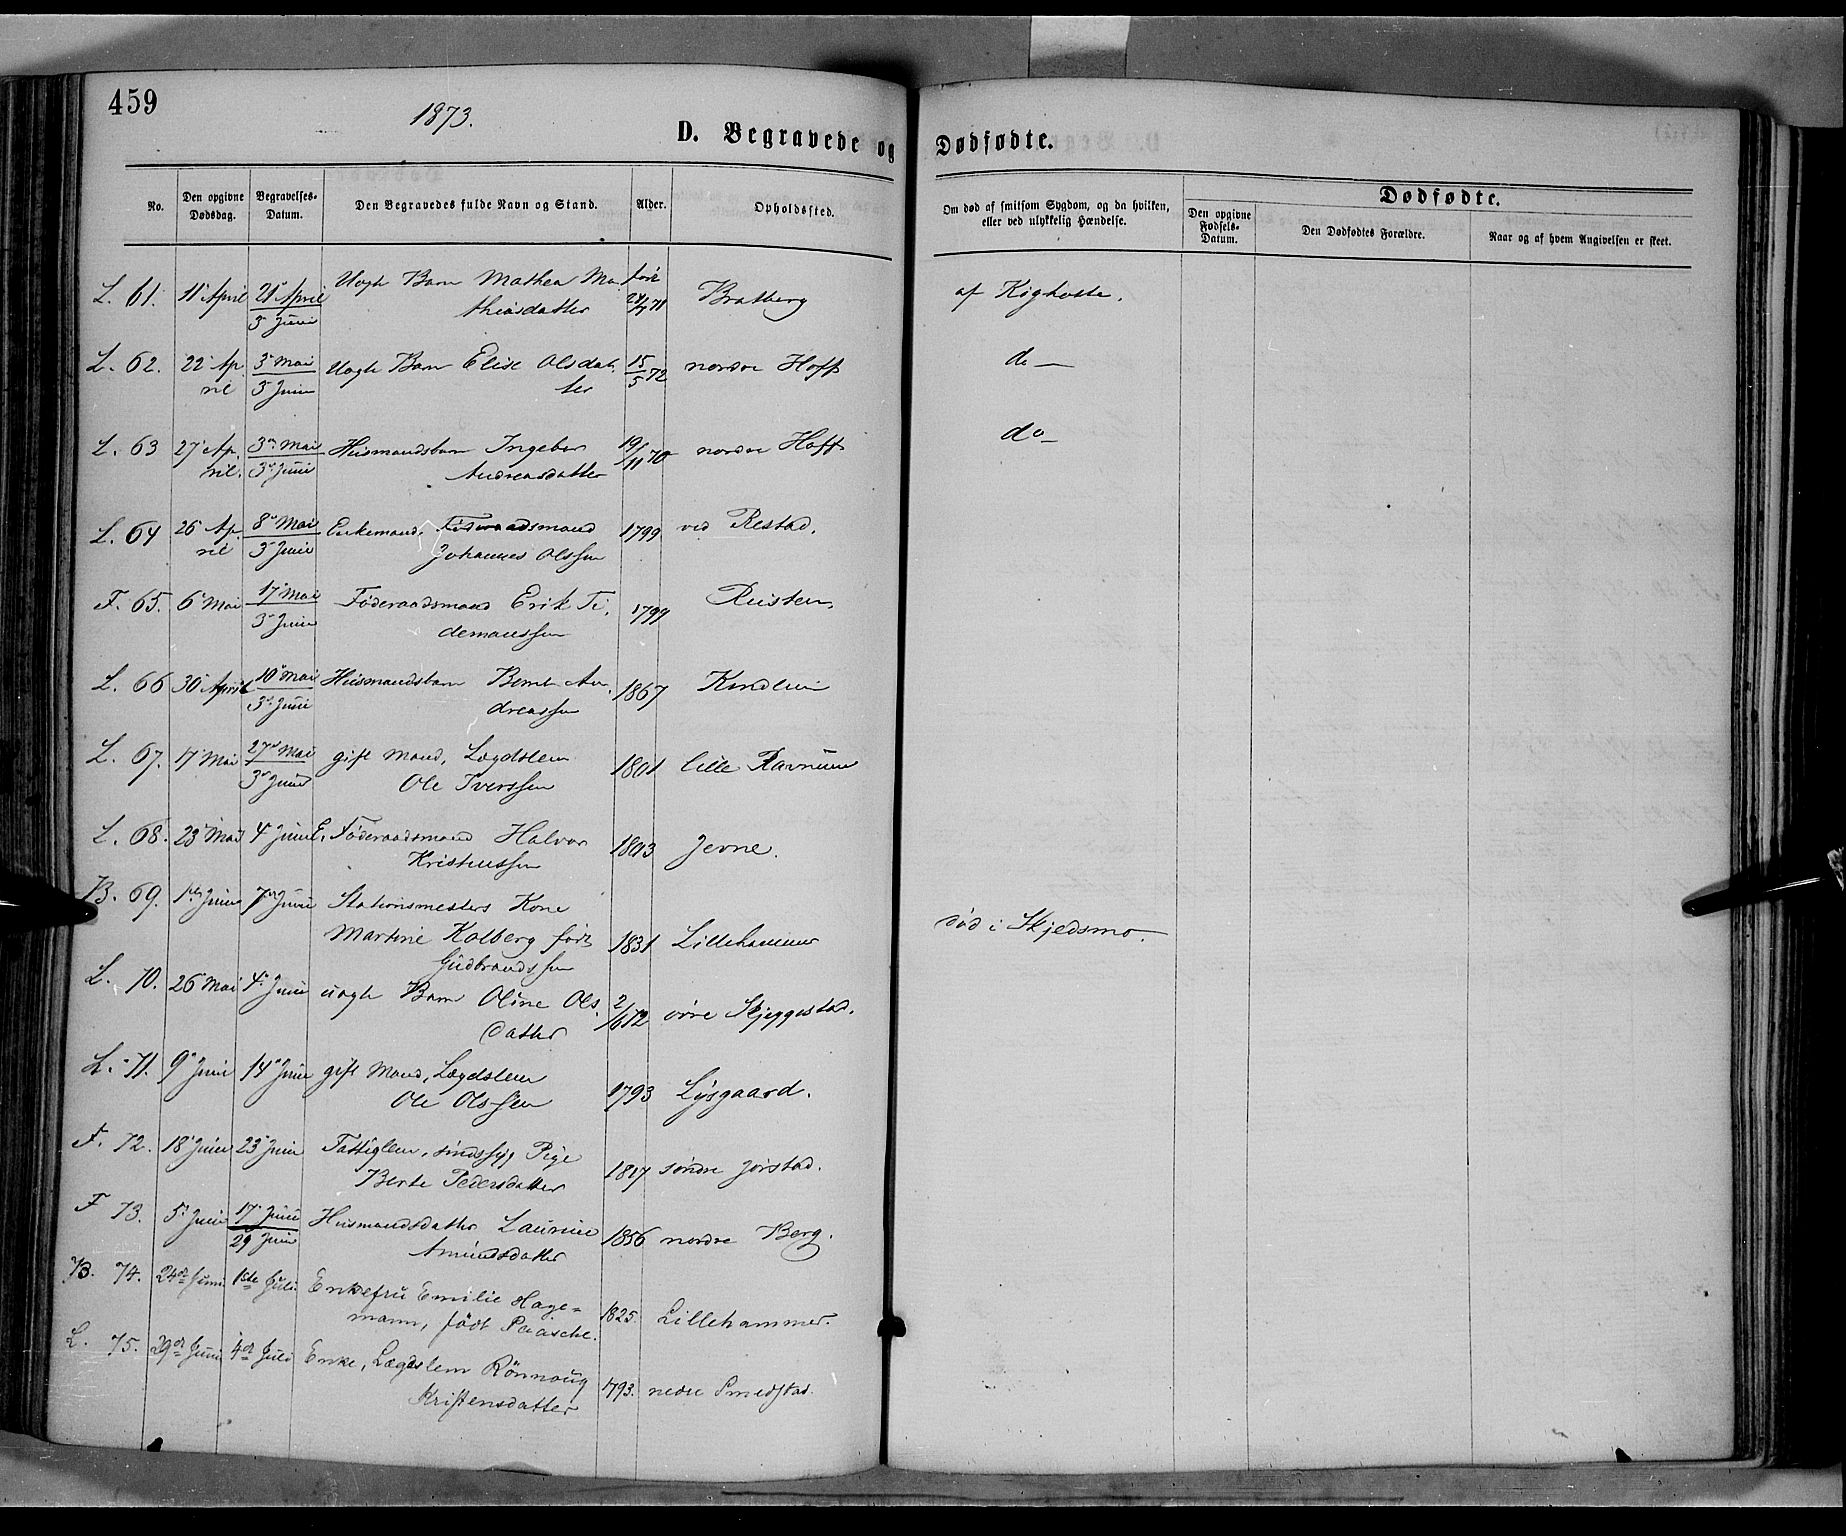 459
1873.
D. Begravede og Dødfødte.
No.
Den opgivne Dødsdag.
Begravelses-Datum.
Den Begravedes fulde Navn og Stand.
Alder.
Opholdssted.
Om død af smitsom Sygdom, og da hvilken, eller ved ulykkelig Hændelse.
Dødfødte.
Den opgivne Fødsels-Datum.
Den Dødfødtes Forældre.
Naar og af hvem Angivelsen er skeet.
L. 61. 11 April 21 April Uægte Barn Mathea Ma født Bratberg af Kighoste.
3 Juni thiasdatter 71
L. 62. 22 Ap 3 Mai Uægte Barn Elise Olsdat 15/5 72 nordre Hoff do
ril 3 Juni ter
L. 63 27 Ap 3 Mai Huusmandsbarn Ingebor 19/11 70 nordre Hoff do
ril. 3 Juni Andreasdatter
L. 64 26 Ap 8 Mai Enkemand, Føderaadsmand 1799 ved Restad.
ril 3 Juni Johannes Olssen
F. 65. 6 Mai 17 Mai Føderaadsmand Erik Ti 1799 Rusten
3 Juni demanssen
L. 66 30 April 10 Mai Huusmandsbarn Bernt An 1867 Kindlein
3 Juni dreassen
L. 67. 17 Mai 27 Mai gift Mand, Lægdslem 1801 lille Ravnum
3 Juni Ole Iverssen
L. 68. 23 Mai 4 Juni E. Føderaadsmand Halvor 1803 Jevne.
Kristenssen
B. 69. 1 Juni 7 Juni Stationsmesters Kone
Martine Kolberg født 1831 Lillehammer død i Skjedsmo.
Gudbrandssen
L. 70. 26 Mai 4 Juni uægte Barn Oline Ols 2/6 72 øvre Skjeggestad.
datter
L. 71. 9 Juni 14 Juni gift Mand, Lægdslem
Ole Olssen 1793 Lysgaard.
F. 72. 18 Juni 23 Juni Fattiglem, sindssyg Pige
Berte Pedersdatter 1817 søndre Jørstad.
F 73. 5 Juni 17 Juni Husmandsdatter Laurine 1856 nordre Berg.
29 Juni Amundsdatter
B. 74. 24de Juni 1ste Juli Enkefru Emilie Hage=
mann, født Paasche. 1825. Lillehammer.
L. 75. 29de Juni 4de Juli Enke, Lægdslem Rönnoug
Kristensdatter 1793. nedre Smedstad.